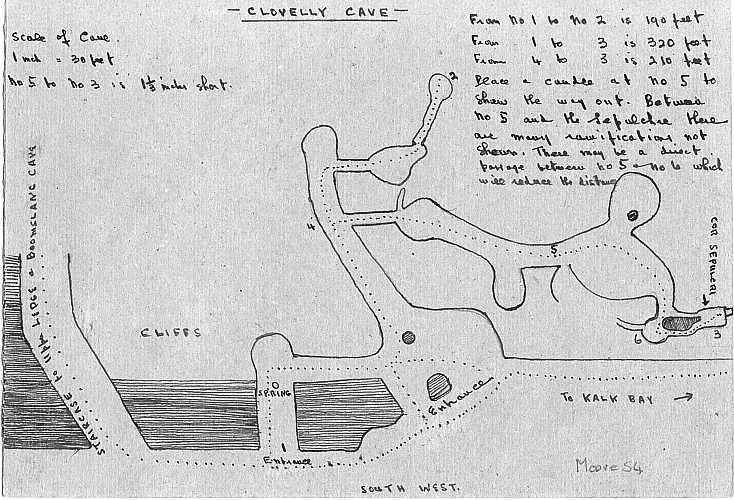 - CLOVELLY CAVE -
Scale of Cave.
1 inch = 30 feet
No 5 to No 3 is 1⅓ inches short.
From No 1 to No 2 is 190 feet
From 1 to 3 is 320 feet
From 4 to 3 is 210 feet
Place a candle at No 5 to
shew the way out. Between
No 5 and the Sepulchre there
are many ramifications not
shewn. There may be a direct
passage between No 5 & No 6 which
will reduce the distance
2
4
5
6
3
COR SEPULCRI
STAIRCASE TO UPPER LEDGE & BOOMSLANG CAVE
CLIFFS
SPRING
1
Entrance
Entrance
TO KALK BAY
SOUTH WEST.
Moore 54